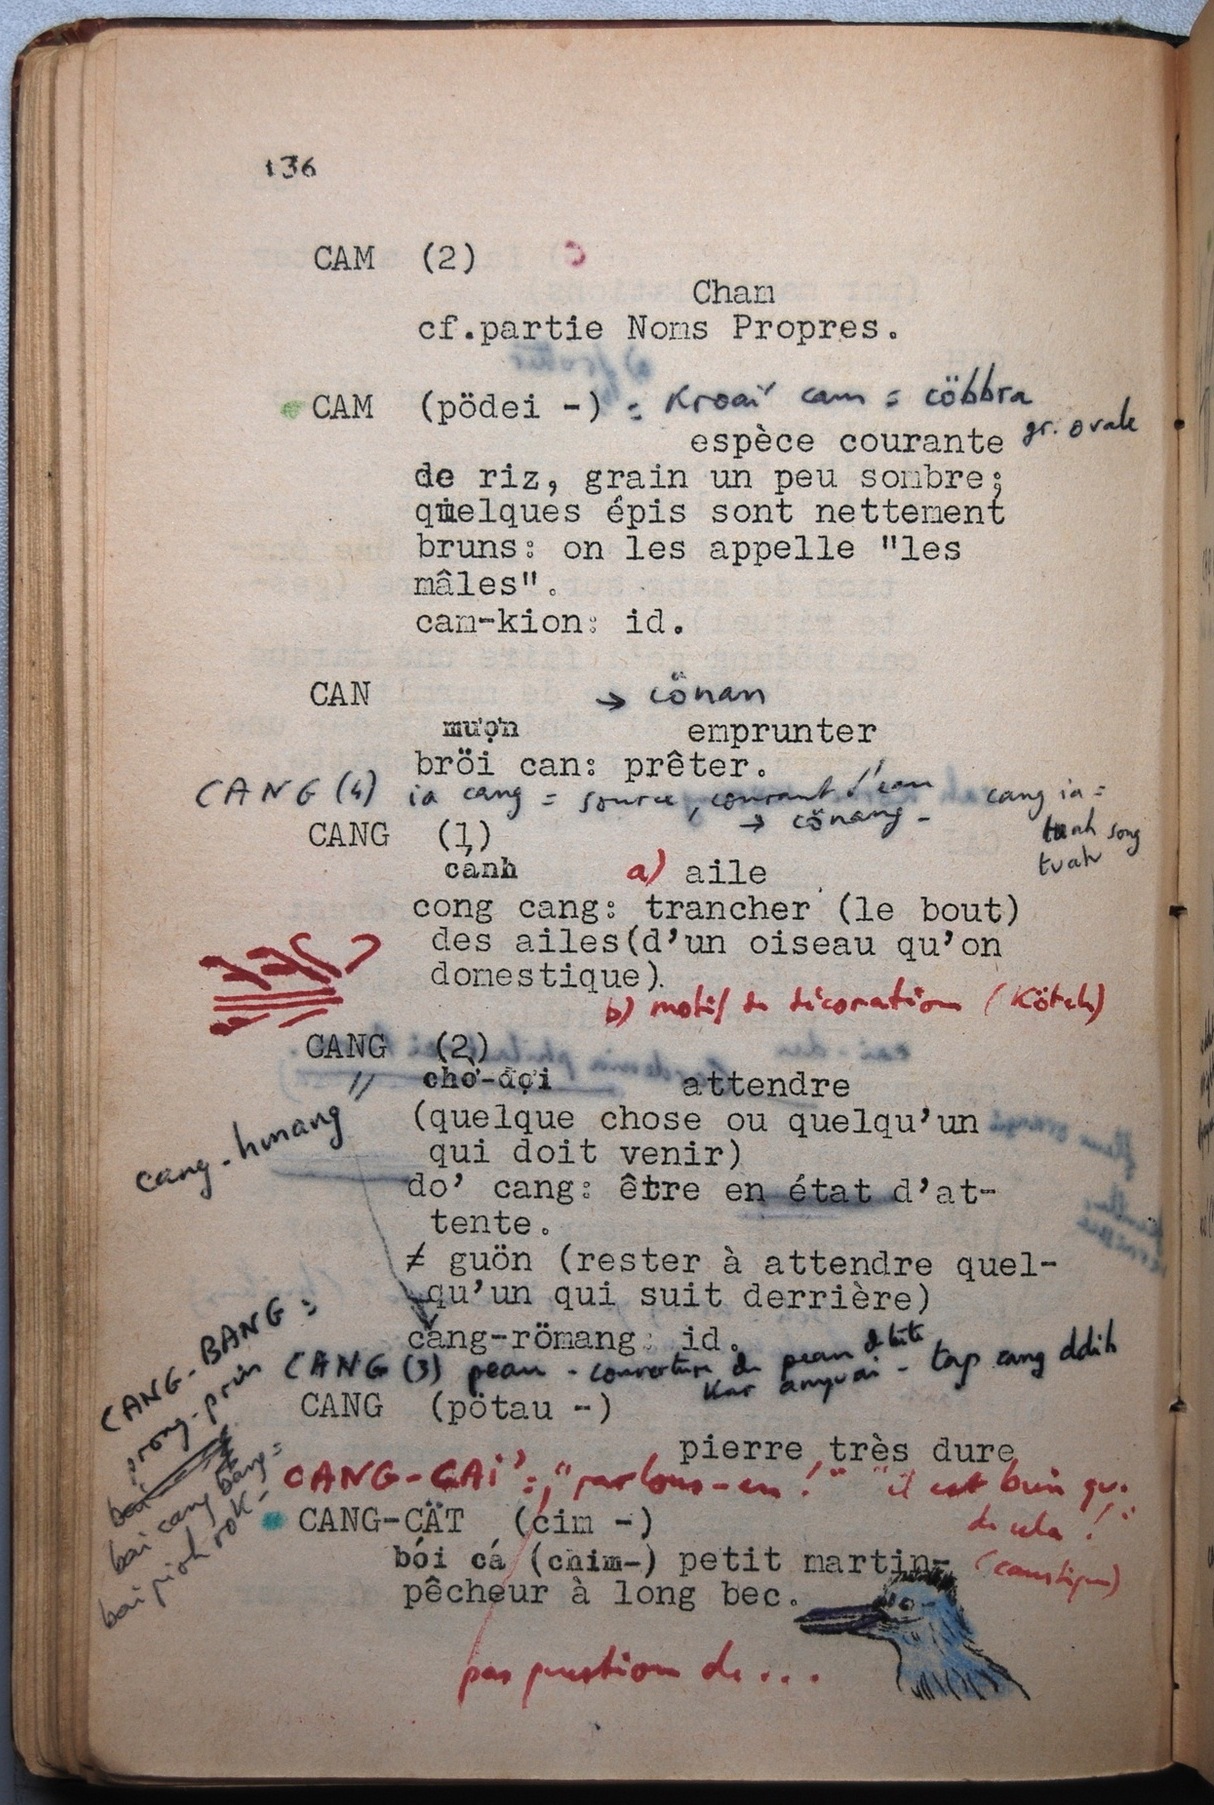 136
CAM (2)
Cham
cf.partie Noms Propres.
CAM (pödei -) = Kroaĭ cam = cöbbra
gr. ovale
espèce courante
de riz, grain un peu sombre;
quelques épis sont nettement
bruns: on les appelle "les
mâles".
cam-kion: id.
CAN → cönan
mượn emprunter
bröi can: prêter.
CANG (4) ia cang = source, courant d'eau cang ia =
→ cönang -
CANG (1)
cánh a) aile
cong cang: trancher (le bout)
des ailes(d'un oiseau qu'on
domestique).
b) motif de décoration (Köteh)
CANG (2)
chờ-đợi attendre
(quelque chose ou quelqu'un
qui doit venir)
cang-hmang
do' cang: être en état d'at-
tente.
≠ guön (rester à attendre quel-
qu'un qui suit derrière)
cang-römang: id.
CANG (3) peau - couverture de peau de bête
CANG-BANG =
prong-prin
CANG (pötau -)
pierre très dure
CANG-CAI' : "parlons-en !" "il est bien qu.
de cela !"
(caustique)
CANG-CĂT (cim -)
bói cá (chim-) petit martin-
pêcheur à long bec.
bai cang bang =
pas question de ...